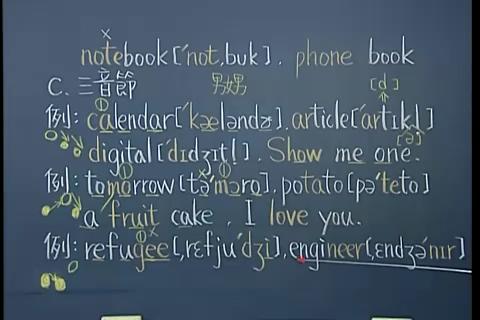 notebook [ˈnotˌbuk]. phone book
C. 三音節 [d]
例: calendar [ˈkæləndɚ]. article [ˈartɪkl̩]
digital [ˈdɪdʒɪtl̩]. Show me one. [ə]
例: tomorrow [təˈmɔro]. potato [pəˈteto]
a fruit cake. I love you.
例: refugee [ˌrɛfjuˈdʒi]. engineer [ˌɛndʒəˈnɪr]